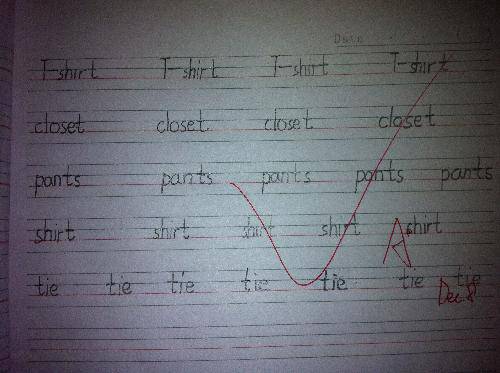 Date
T-shirt T-shirt T-shirt T-shirt
closet closet closet closet
pants pants pants pants pants
shirt shirt shirt shirt shirt
A
tie tie tie tie tie tie tie
Dec 8